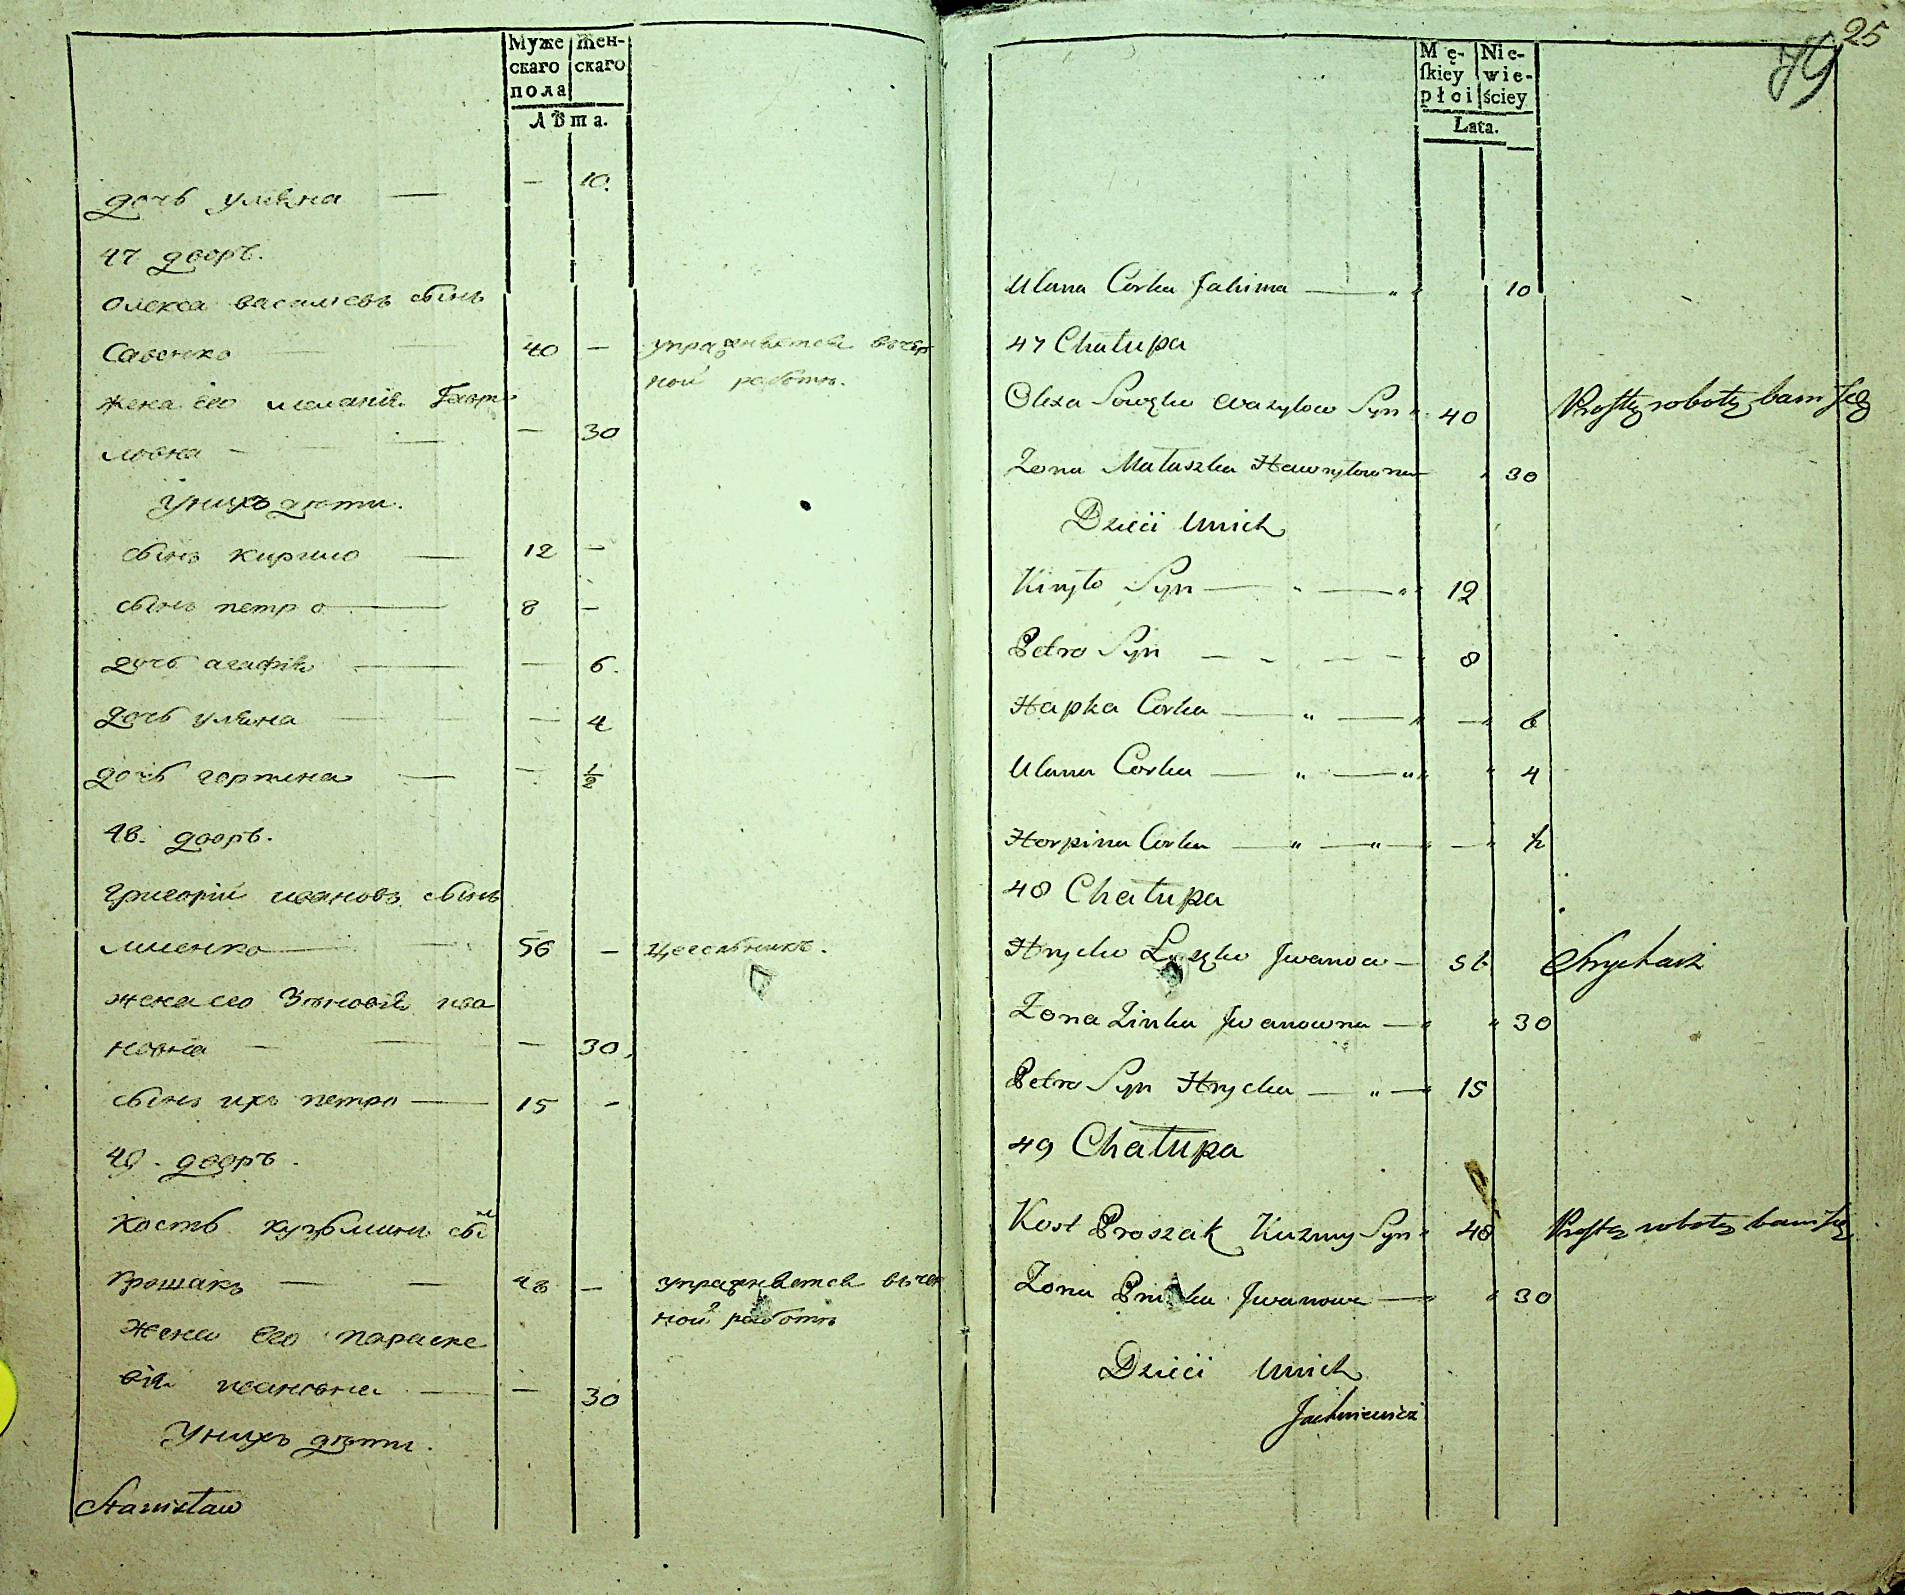 Муже
скаго
пола
Жен-
скаго
Лѣта.
дочь уляна — — 10.
47 дворъ.
Олекса васильевъ сынъ
Савенко — — 40 — упражняется вчер
ной работѣ.
жена его меланія Гаври
ловна — — — 30
Унихъ дѣти.
сынъ кирило — 12 —
сынъ петро — 8 —
дочь агафія — — 6.
дочь уляна — — 4
дочь горпина — — ½
48. дворъ.
григорій ивановъ сынъ
— — 56 — цегельникъ.
жена его Зѣновія ива
новна — — — 30.
сынъ ихъ петро — 15 —
49. дворъ.
Кость кузьминъ сынъ
Прошакъ — — 48 — упражняется вчер
ной работѣ
жена Его параске
вія ивановна — — 30
Унихъ дѣти.
Stanisław
25
79
Mę-
skiey
płci
Nie-
wie-
ściey
Lata.
Ulana Corka Jahima — " " 10
47 Chałupa
Olexa Sowęko Wasylow Syn " 40 Prostą robotą bawi się
Zona Małaszka Hawryłowna " 30
Dzieci Unich
Kiryło Syn — " — " 12
Petro Syn — - — - 8
Hapka Corka — " — " — " 6
Ulana Corka — " — " " " 4
Horpina Corka — " — " — " — " ½
48 Chałupa
Hrycko Jwanow — 56 Strycharz
Zona Zinka Jwanowna — " " 30
Petro Syn Hrycka — " — " 15
49 Chałupa
Kost Proszak Kuzmy Syn " 48 Prostą robotą bawi się
Zona Jwanowa — " " 30
Dzieci Unich
Jachniewicz